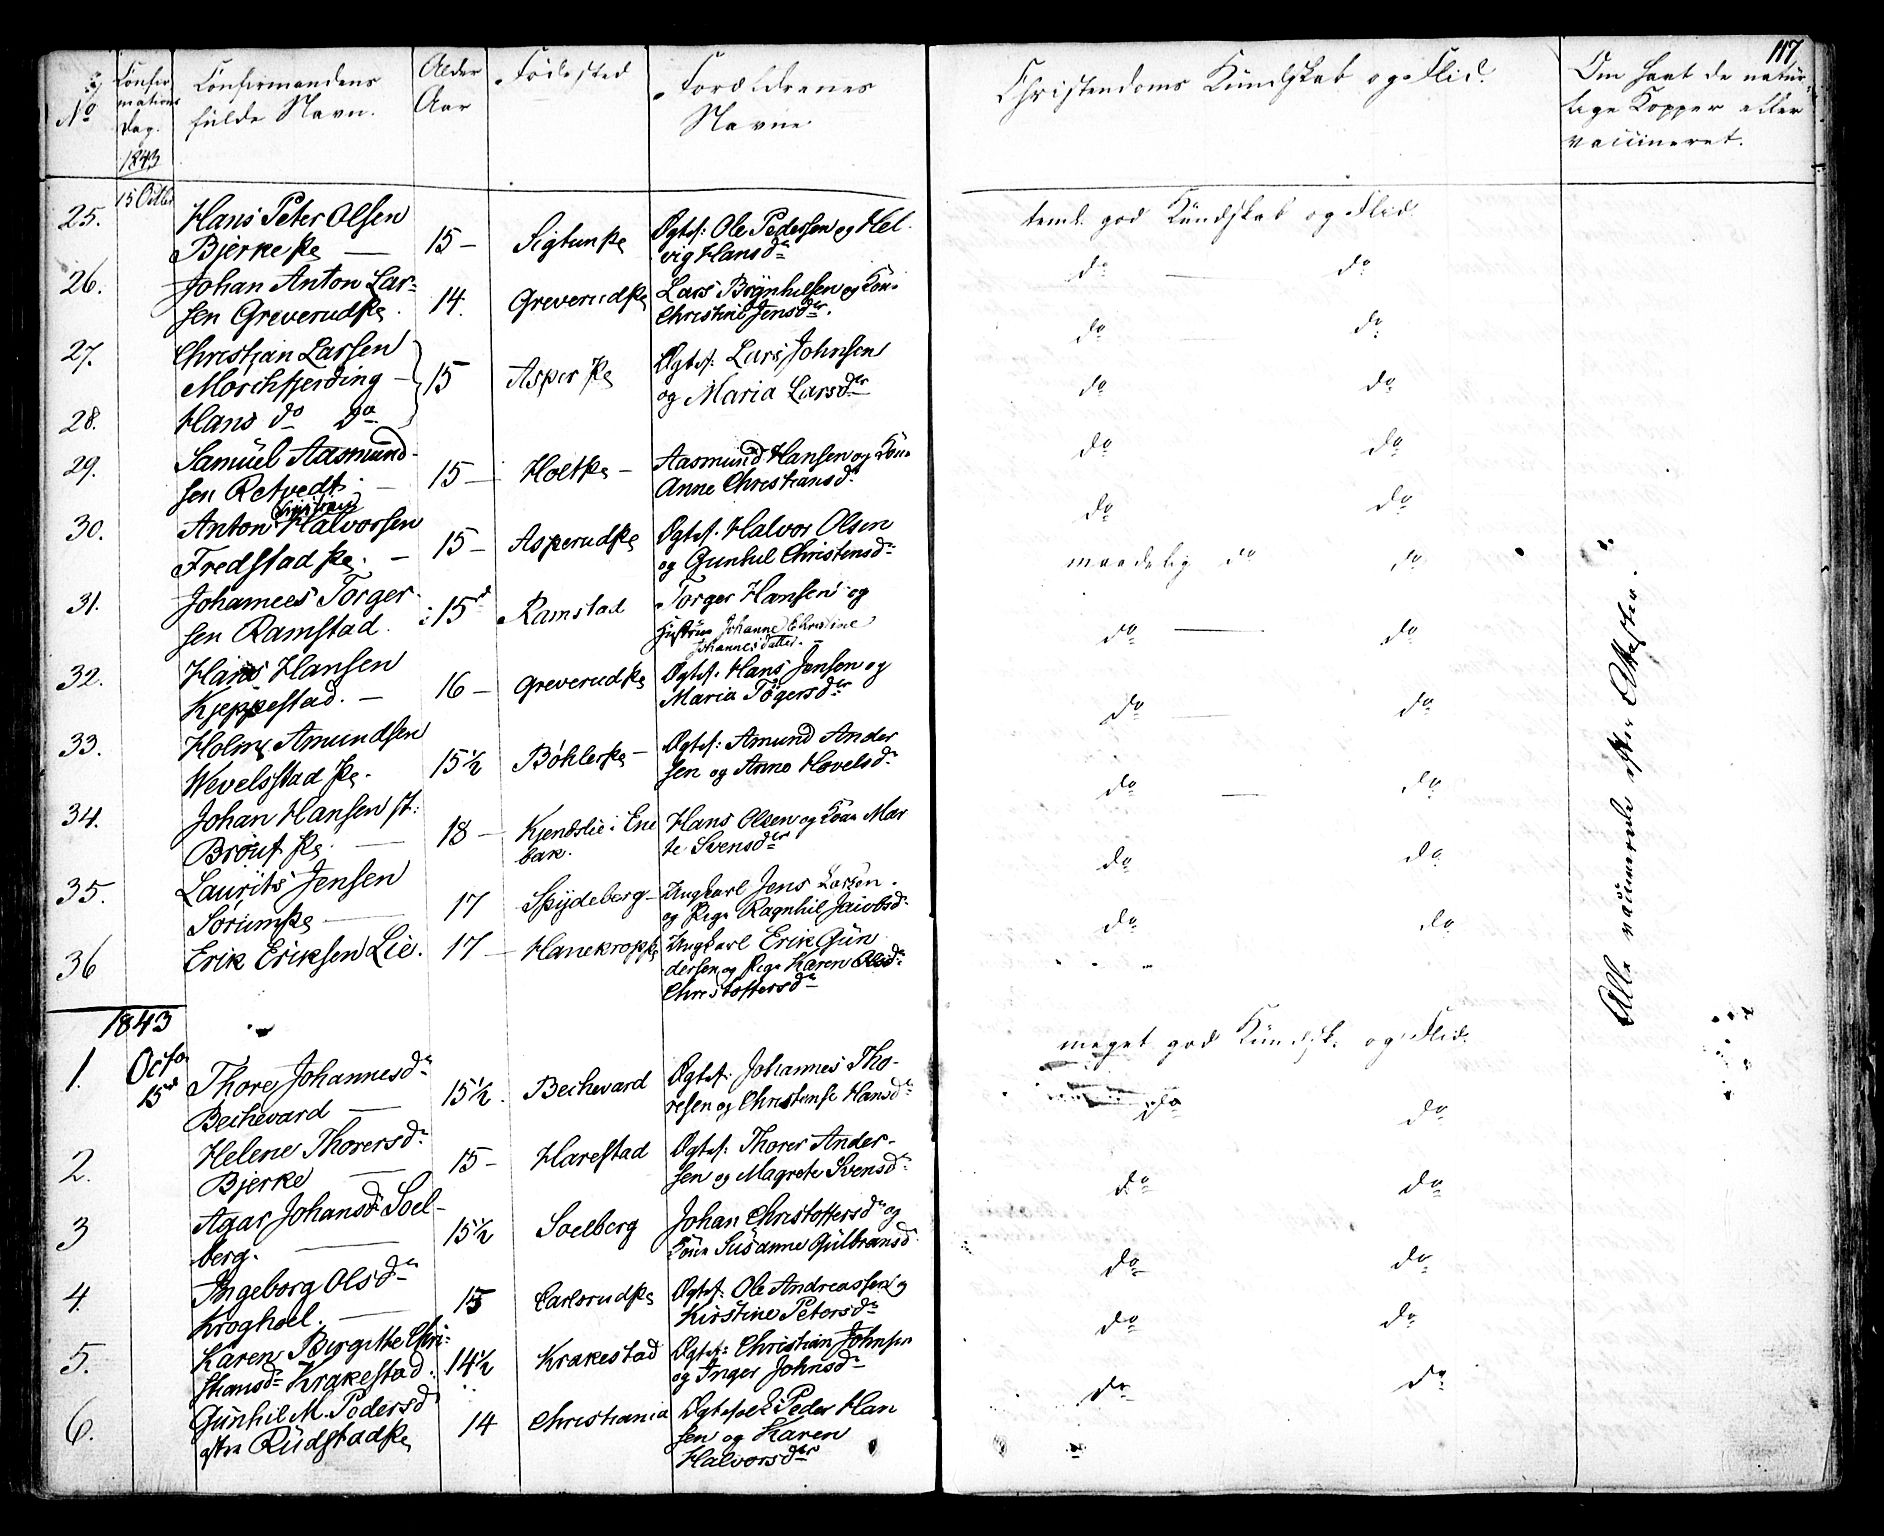 117
No
Confir
mations
Dag.
1843
Confirmandens
fulde Navn.
Alder
Aar
Fødested
Forældrenes
Navne
Christendoms Kundskab og Flid.
Om havt de natur-
lige Kopper eller
vaccineret.
25. 15 Octbr Hans Peter Olsen
Bjerke 15 – Sigtun
Ægtef: Ole Pedersen og Hel-
vig Hansdr
teml. god Kundskab og Flid.
26. Johan Anton Lar-
sen Greverud 14. Greverud
Lars Brynhelsen og Kone
Christine Jensdr.
do do
27. Christian Larsen
Morchfjerding – 15 Asper
Ægtef: Lars Johnsen
og Maria Larsdr
do do
28. Hans do do
do do
29. Samuel Aasmund-
sen Retvedt 15 – Holt –
Aasmund Hansen og Kone
Anne Christiansdr
do do
30. Anton Halvorsen
Fredstad – 15 – Asperud
Ægtef. Halvor Olsen
og Gunhil Christensdr
do do
31. Johannes Torger-
sen Ramstad 15 Ramstad
Torger Hansen og
Hustrue Johanne Christine
Johannesdatter. –
maadelig do do
32. Hans Hansen
Kjeppestad. – 16 – Greverud
Ægtef. Hans Jensen og
Maria Tøgersdr
do do
33. Holm Amundsen
Wevelsstad 15½ Bøhler –
Ægtef: Amund Ander
sen og Anne Hovelsdr
do do
34. Johan Hansen st:
Brout 18 – Kjendslie i Ene
bak.
Hans Olsen og Kone Mar
te Svensdr
do do
35. Laurits Jensen
Sørum 17 Spydeberg –
Ungkarl Jens Larsen
og Pige Ragnhil Jacobsdr
do do
36 Erik Eriksen Lie. 17 – Hanekropp
Ungkarl Erik Gun
dersen og Pige Karen
Christoffersdr
do do
Alle vaccinerede efter Attester.
1843
1. Octo
15d Thore Johannesdr
Bechevard 15½. Bechevard
Ægtef: Johannes Tho-
resen og Christense Hansdr
meget god Kundsk. og Flid.
do do
2. Helene Thorersdr
Bjerke 15 – Harestad
Ægtef: Thorer Ander-
sen og Magrete Svensdr
do do
3 Agar Johansdr Soel-
berg. 15½ Soelberg
Johan Christoffersen og
Kone Susanne Gulbransd
do do
4. Ingeborg Olsdr
Kroghoel. 15 Carlsrud
Ægtef. Ole Andreassen og
Kirstine Petersdr
do do
5. Karen Birgitte Chri-
stiansdr Krakestad. 14½ Krakestad
Ægtef: Christian Johnsen
og Inger Johnsdr
do do
6. Gunhil M. Pedersd
Rudstad 14 Christiania
Ægtefolk Peder Han
sen og Karen
Halvorsdr